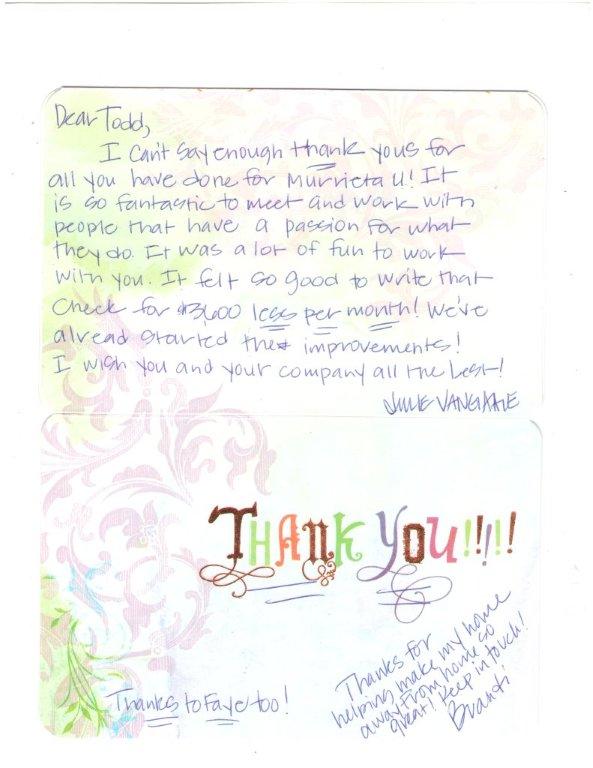 Dear Todd,
I can't say enough thank yous for
all you have done for Murrieta U! It
is so fantastic to meet and work with
people that have a passion for what
they do. It was a lot of fun to work
with you. It felt so good to write that
check for $3,600 less per month! We've
alread started the improvements!
I wish you and your company all the best!
THANK YOU!!!!!
Thanks to Faye too!
Thanks for
helping make my home
away from home so
great! Keep in touch!